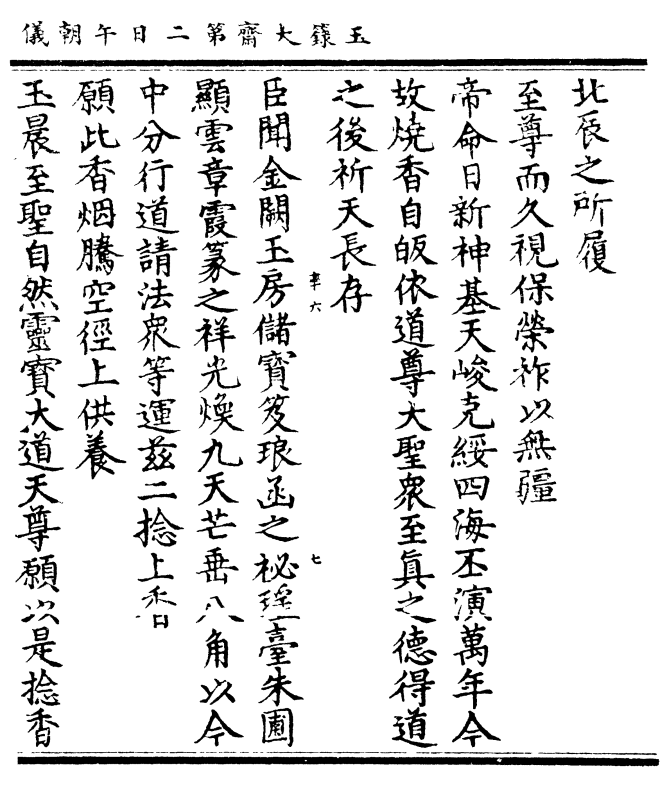 玉籙大齋第二日午朝儀
北辰之所履
至尊而久視保榮祚以無疆
帝命日新神基天峻克綏四海丕演萬年今
故燒香自皈依道尊大聖衆至真之德得道
之後祈天長存
臣聞金闕玉房儲寶笈琅函之祕瑤臺朱圃
顯雲章霞篆之祥光煥九天芒垂八角以今
中分行道請法衆等運茲二捻上香
願此香烟騰空徑上供養
玉晨至聖自然靈寶大道天尊願以是捻香
辛六
七